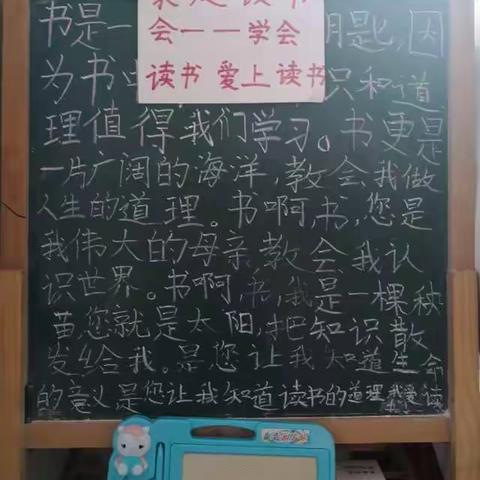 会一一学会
读书 爱上读书
书是一 钥匙,因
为书 识和道
理值得我们学习。书更是
一片广阔的海洋,教会我做
人生的道理。书啊,书,您是
我伟大的母亲,教会我认
识世界。书啊,书,我是一棵秧
苗,您就是太阳,把知识散
发给我。是您让我知道生命
的意义是您让我知道读书的道理我爱读